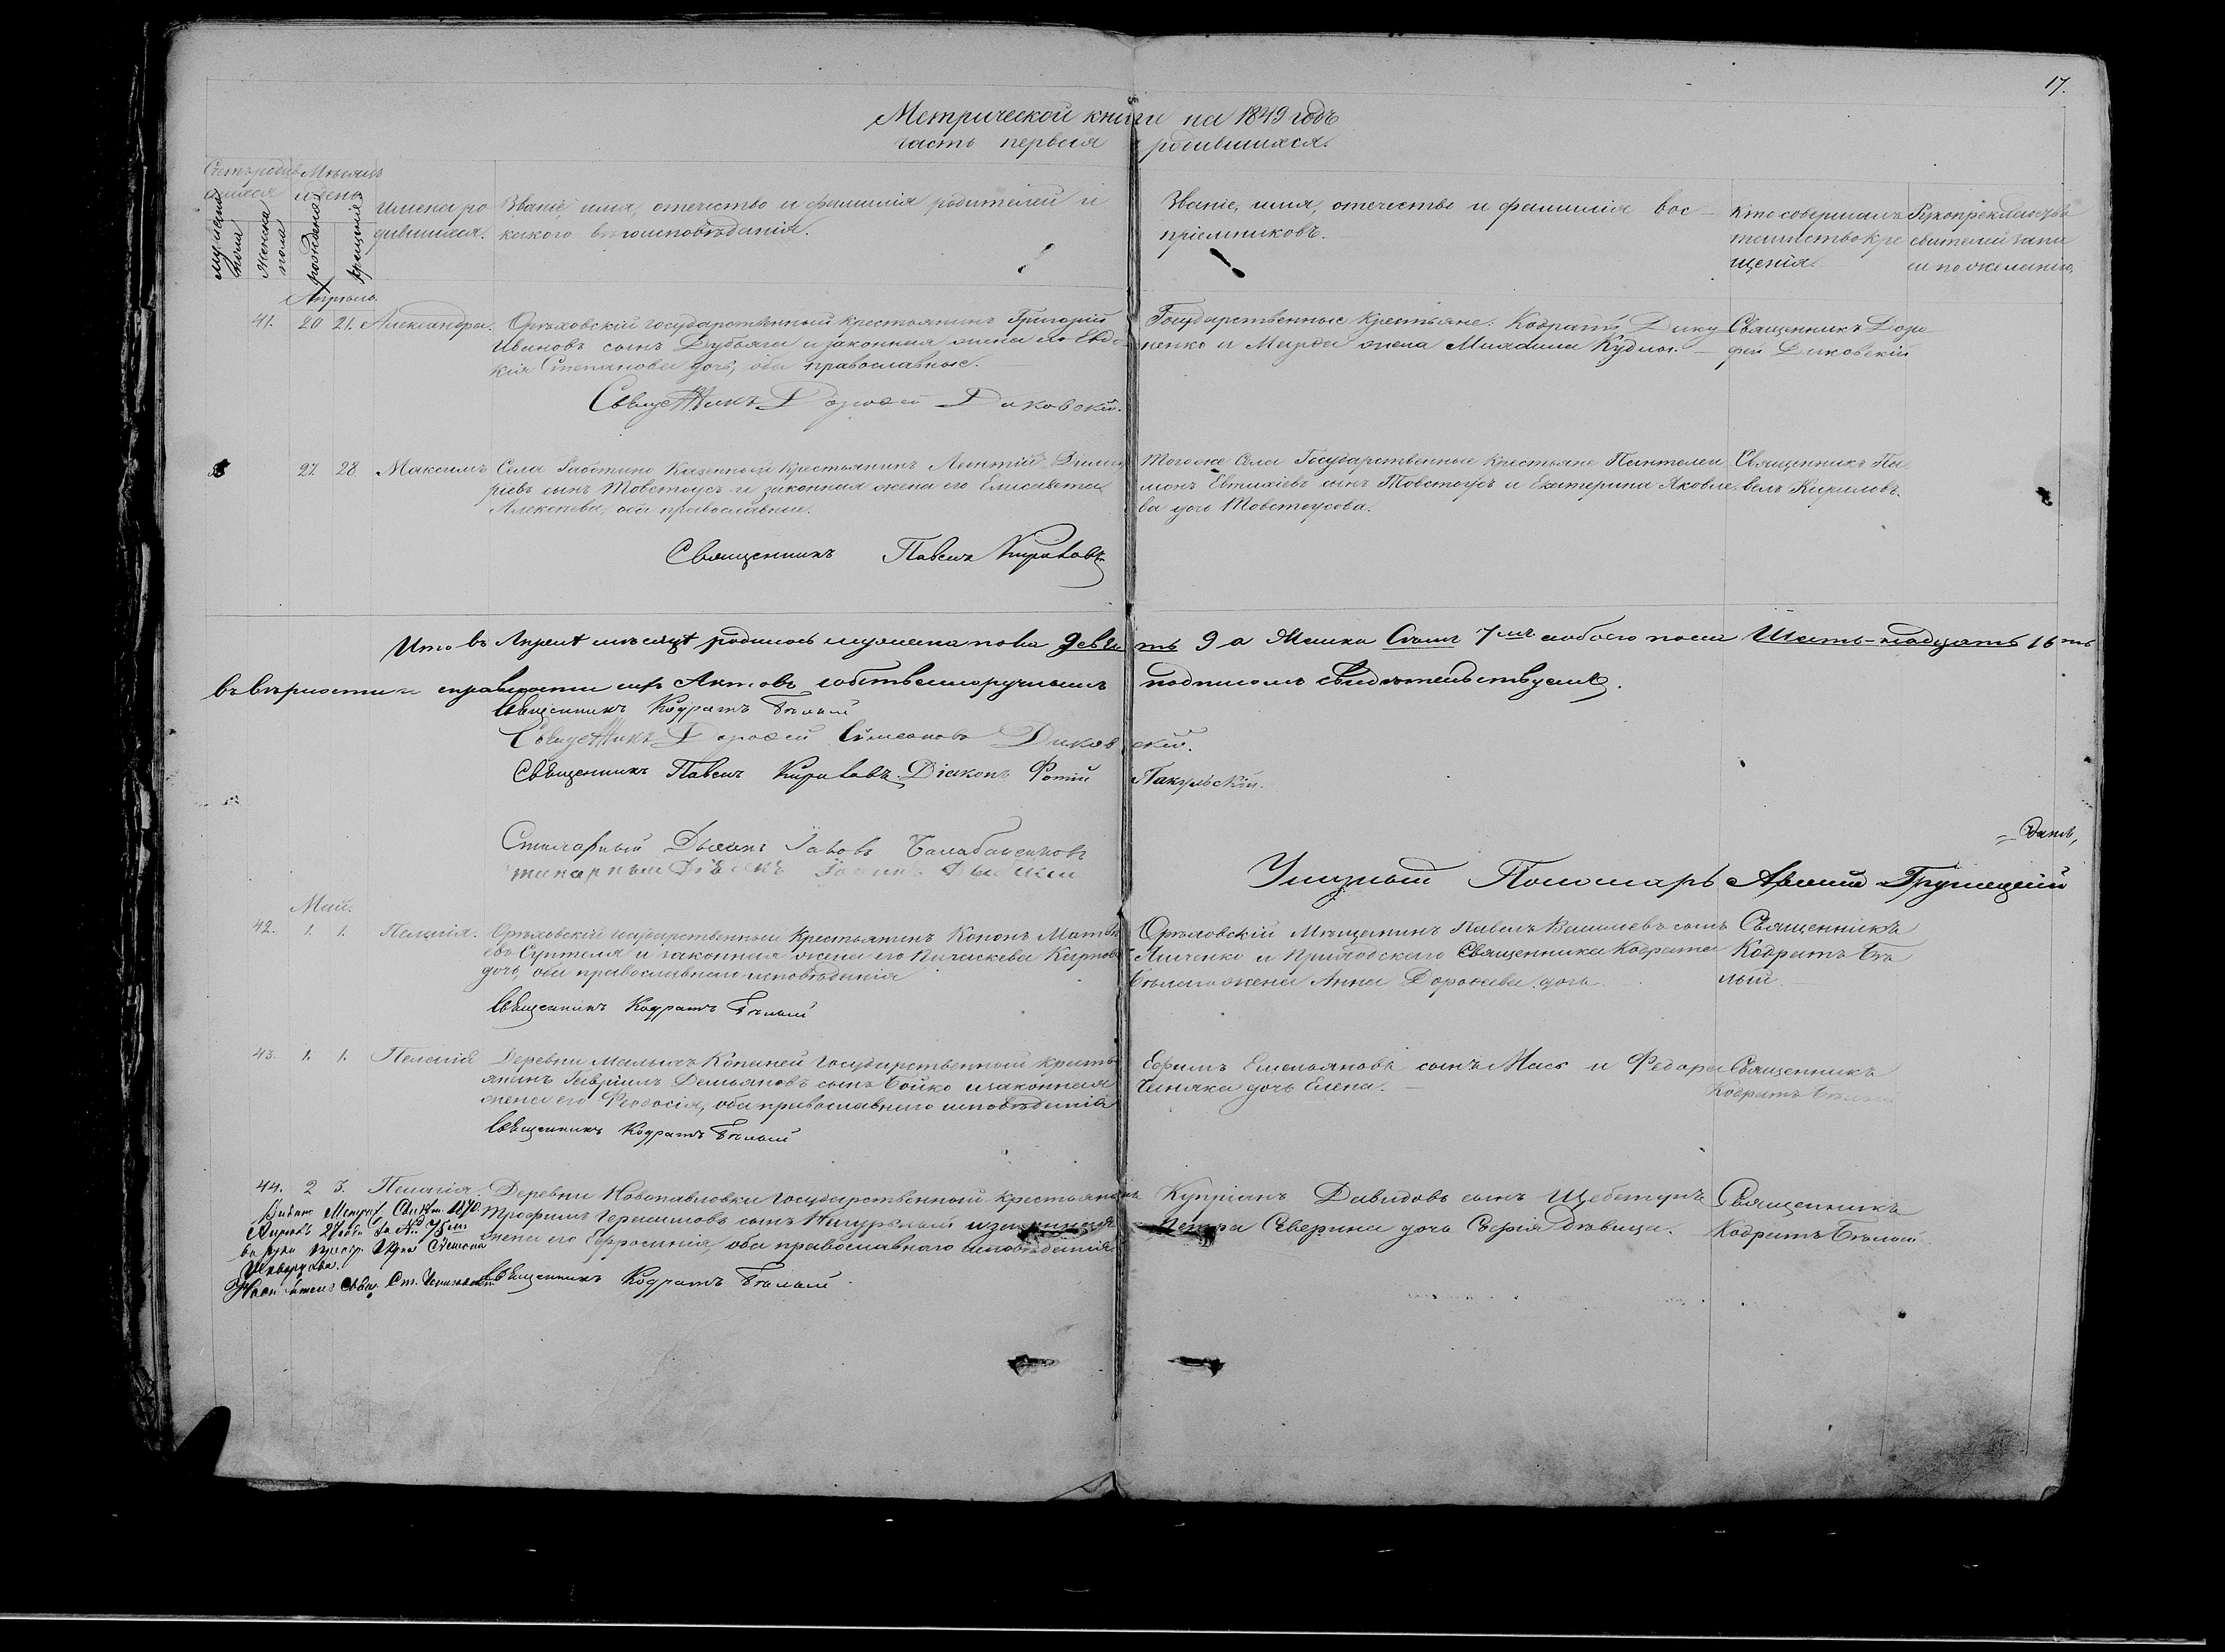 17.
Метрической книги на 1849 годъ
часть первая родившихся.
Мѣсяцъ
и день
мужеска пола
женска пола
рожденія
крещенія
Имена ро
дившихся.
Званіе, имя, отечество и фамилія родителей и
какого вѣроисповѣданія.
Званіе, имя, отечество и фамилія вос
пріемниковъ.
Кто совершалъ
таинство кре
щенія.
Рукоприкладство
свидѣтелей запи
си по желанію.
Апрѣль.
41. 20 21. Александра.
Орѣховскій государственный крестьянинъ Григорій
Ивановъ сынъ Дубяга и законная жена его Евдо
кія Степанова дочь, оба православные.
Священникъ Дорофей Диковскій.
Государственные крестьяне: Кодратъ Дику
ненко и Марфа жена
Священникъ Доро
фей Диковскій
27. 28 Максимъ
Села Работино Казенный крестьянинъ Леонтій
сынъ Товстоусъ и законная жена его Елисавета
Алексѣева, оба православные.
Священникъ Павелъ Кириловъ
Тогоже Села Государственные крестьяне Пантелеи
монъ Евтихіевъ сынъ Товстоусъ и Екатерина Яковле
ва дочь Товстоусова.
Священникъ Па
велъ Кириловъ.
Итого въ Апрелѣ мѣсяцѣ родилось мужеска пола девять 9 а Женска Семь 7мъ обоего пола Шеть-надцать 16ть
въ вѣрности и справности сихъ Актовъ собственноручнымъ подписомъ свидѣтельствуемъ.
Священникъ Кодратъ Бѣлый
Священникъ Дорофей Симеоновъ Диковскій.
Священникъ Павелъ Кириловъ. Діаконъ Фотій
Стихарный Дьякъ Іаковъ Балабаненковъ
Стихарный Дьякъ
Пономарь
Май.
42. 1. 1. Пелагія.
Орѣховскій государственный крестьянинъ Кононъ Матвѣ
евъ и законная жена его Параскева Карпова
дочь оба православнаго исповѣданія
Священникъ Кодратъ Бѣлый
Орѣховскій Мѣщанинъ Павелъ сынъ
и Приходскаго Священника Кодрата
Бѣлаго жена Анна Дорофеева дочь
Священникъ
Кодратъ Бѣ
лый
43. 1. 1. Пелагія
Деревни Малыхъ Копаней Государственный крестья
янинъ Гавріилъ Демьяновъ сынъ Бойко и законная
жена его Феодосія, оба православнаго исповѣданія
Священникъ Кодратъ Бѣлый
Ефимъ Емельяновъ сынъ и Федора
дочь Елена.
Священникъ
Кодратъ Бѣлый
44. 2 3. Пелагія.
Деревни Новопавловки Государственный крестьянинъ
Трофимъ Герасимовъ сынъ и законная
жена его Ефросинія, оба православнаго исповѣданія
Священникъ Кодратъ Бѣлый
Купріанъ Давидовъ сынъ Щебетунъ
дочь дѣвица.
Священникъ
Кодратъ Бѣлый